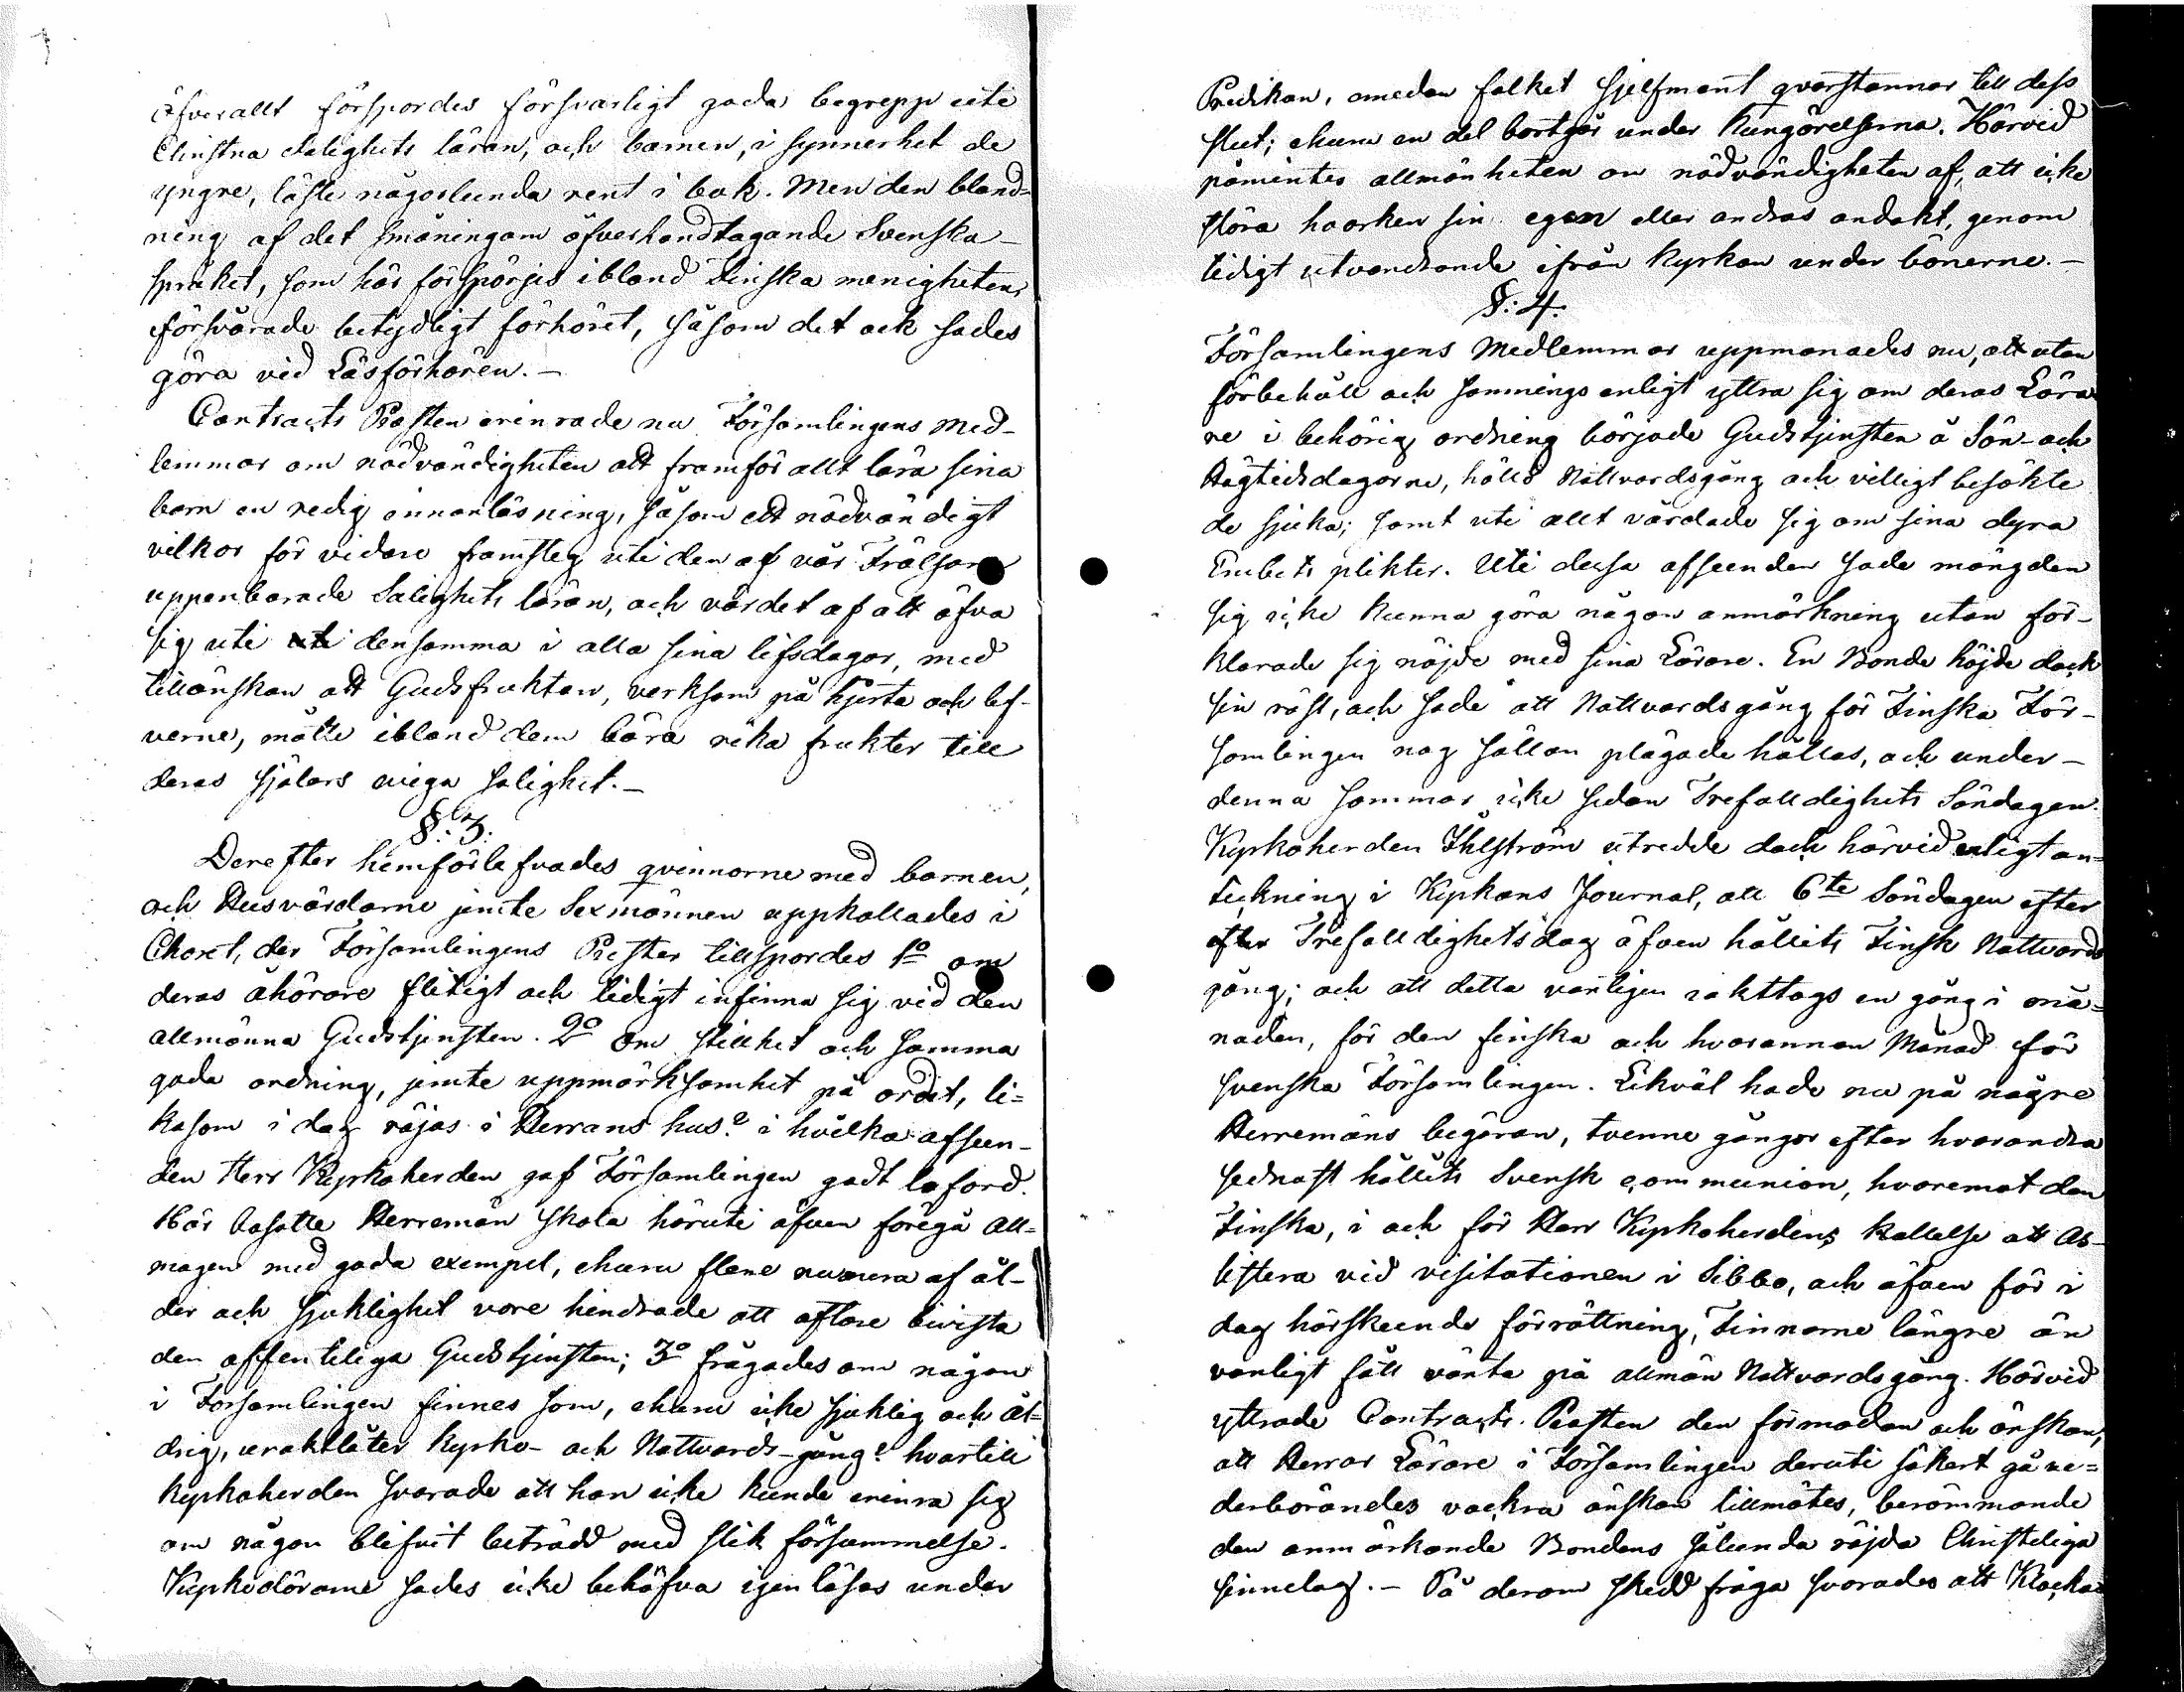 öfverallt förspordes försvarligt goda begrepp uti
Christna Salighets läran, och barnen, i synnerhet de
yngre, läste någorlunda rent i bok. Men den bland-
ning af det småningom öfverhandtagande Svenska-
språket, som här förspörjes ibland Finska menigheten,
försvårade betydligt förhöret, såsom det ock sades
göra vid Läsförhören.-
Contracts Prosten erinrade nu Församlingens Med-
lemmar om nödvändigheten att framför allt lära sina
barn en redig innanläsning, såsom ett nödvändigt
vilkor för vidare framsteg uti den af vår Frälsare
uppenbarade Salighets läran, och värdet af att öfva
sig uti uti densamma i alla sina lifsdagar, med
tillönskan att Gudsfruktan, verksam på hjerta och lef-
verne, måtte ibland dem bära rika frukter till
deras själars eviga salighet.-
§:3:
Derefter hemförlofvades qvinnorne med barnen,
och Husvärdarne jemte Sexmännen uppkallades i
Choret, der Församlingens Prester tillspordes 1o om
deras åhörare flitigt och tidigt infinna sig vid den
allmänna Gudstjensten. 2o Om stillhet och samma
goda ordning, jemte uppmärksamhet på ordet, li=
kasom i dag röjas i Herrans hus? i hvilka afseen-
den Herr Kyrkoherden gaf Församlingen godt loford.
Här bosatte Herremän skola häruti äfven föregå All=
mogen med goda exempel, ehuru flere numera af ål-
der och sjuklighet vore hindrade att oftare bivista
den offenteliga Gudstjensten; 3o frågades om någon
i Församlingen finnes som, ehuru icke sjuklig och ål=
drig, uraktlåter Kyrko- och Nattvards-gång? hvartill
Kyrkoherden svarade att han icke kunde erinra sig
om någon blifvit beträdd med slik försummelse.
Kyrkodörarne sades icke behöfva igenlåsas under
Predikan, emedan folket sjelfmant qvarstannar till dess
slut; ehuru en del bortgår under Kungörelserna. Härvid
påmintes allmänheten om nödvändigheten af, att icke
störa hvarken sin egen eller andras andakt, genom
tidigt utvandrande ifrån Kyrkan under bönerne.-
§:4.
Församlingens Medlemmar uppmanades nu, att utan
förbehåll och sannings enligt yttra sig om deras Lära
re i behörig ordning började Gudstjensten å Sön- och
Högtidsdagarne, höllo Nattvardsgång och villigt besökte
de sjuka; samt uti allt vårdade sig om sina dyra
Embets plikter. Uti dessa afseenden sade mängden
sig icke kunna göra någon anmärkning utan för-
klarade sig nöjde med sina Lärare. En Bonde höjde dock
sin röst, och sade att Nattvards gång för Finska För-
samlingen nog sällan plägade hållas, och under-
denna sommar icke sedan Trefalldighets Söndagen.
Kyrkoherden Ihlström utredde dock härvid enligt an-
teckning i Kyrkans Journal, att 6te Söndagen efter
efter Trefalldighetsdag äfven hållits Finsk Nattvards
gång; och att detta vanligen iakttogs en gång i må=
naden, för den finska och hvarannan Månad för
svenska Församlingen. Likväl hade nu på någre
Herremäns begäran, tvenne gångor efter hvarandra
sednast hållits Svensk communion, hvaremot den
Finska, i och för Herr Kyrkoherdens kallelse att As-
sistera vid visitationen i Sibbo, och äfven för i
dag härskeende förrättning, Finnarne längre än
vanligt fått vänta på allmän Nattvardsgång. Härvid
yttrade Contracts-Prosten den förmodan och önskan,
att Herrar Lärare i Församlingen deruti säkert gå ve=
derbörandes vackra önskan tillmötes, berömmande
den anmärkande Bondens sålunda röjda Christeliga
sinnelag.- På derom skedd fråga svarades att Klocka